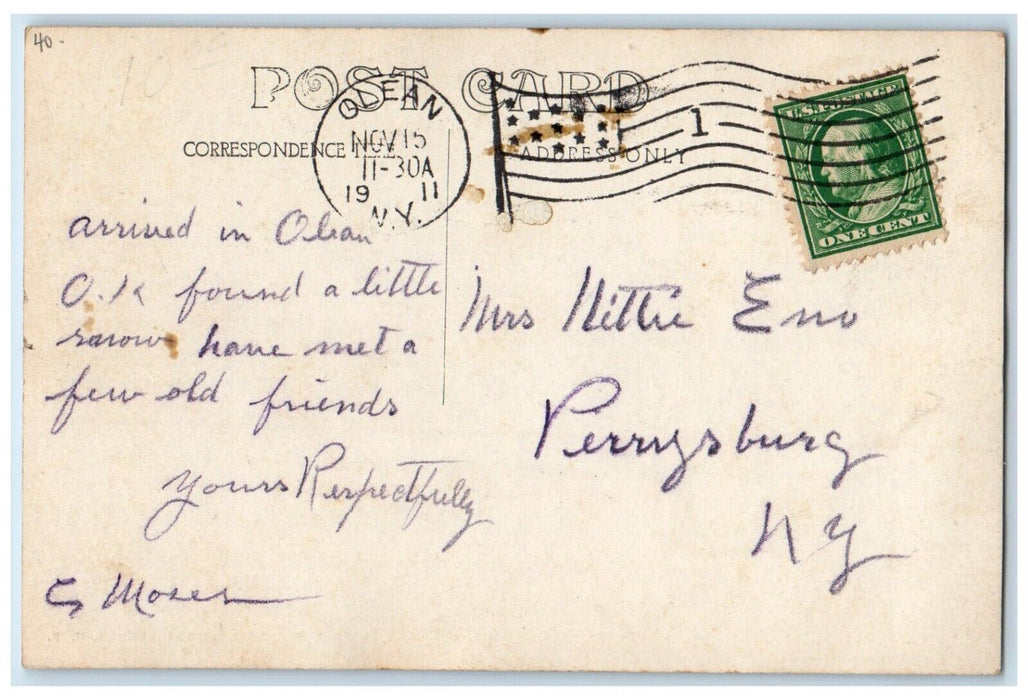 40-
10
POST CARD
CORRESPONDENCE HERE
ADDRESS ONLY
OLEAN
NOV 15
11-30A
19 11
N.Y.
1
U.S. POSTAGE
ONE CENT
arrived in Olean
O.K found a little
snow have met a
few old friends
yours Respectfully
G Moses
Mrs Nittie Eno
Perrysburg
NY